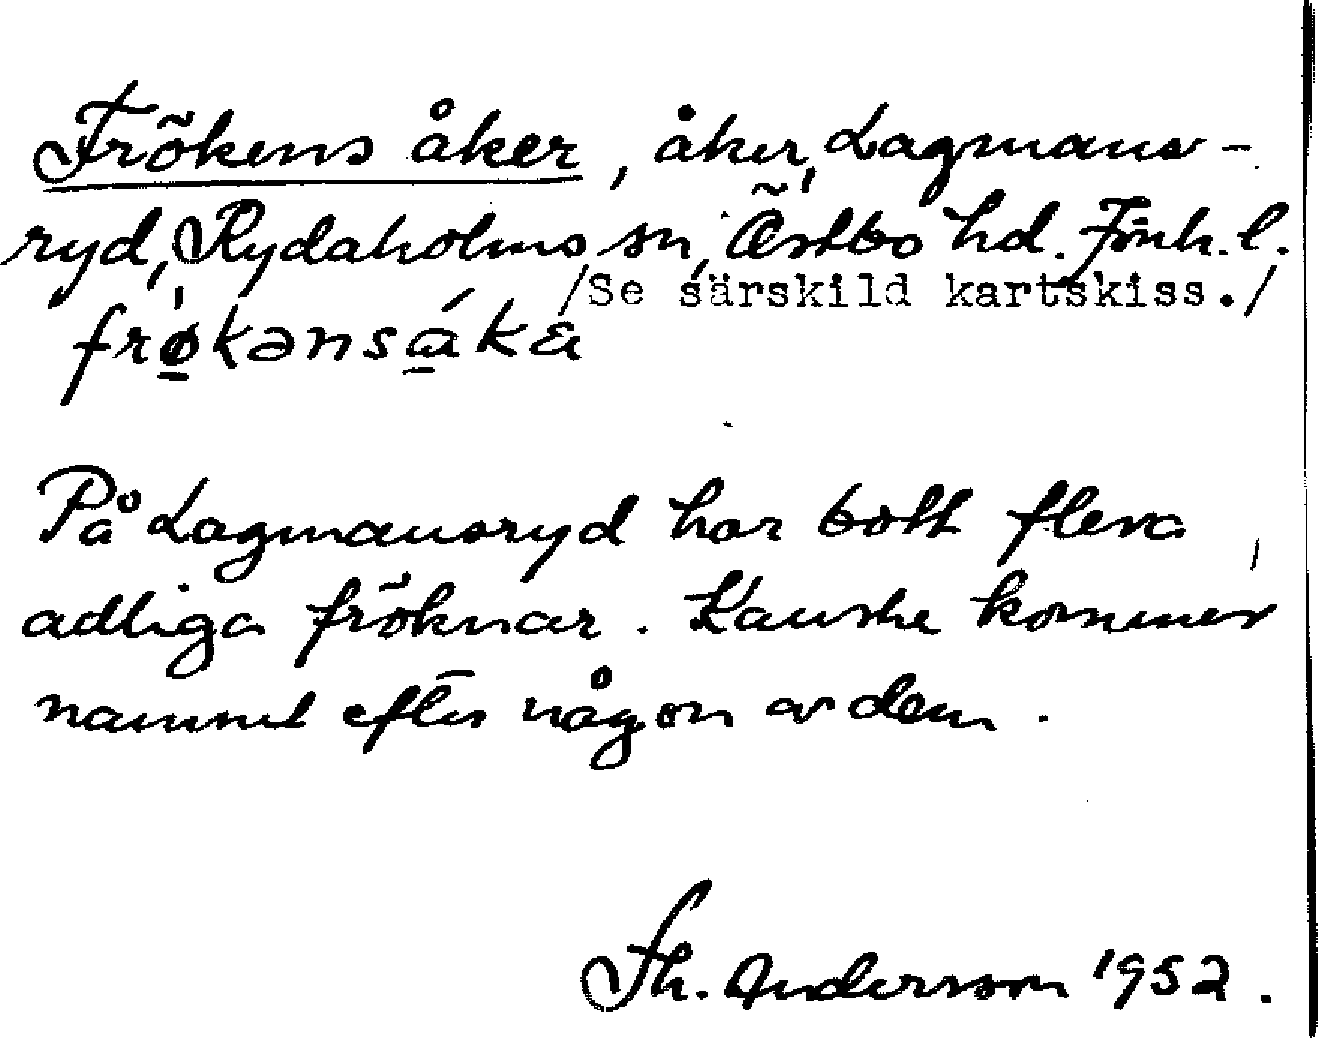 Frökens åker, åker, Lagmans-
ryd, Rydaholms sn, Östbo hd. Jönk. l.
/Se särskild kartskiss./
frøkənsákɑ
På Lagmansryd har bott flera
adliga fröknar. Kanske kommer
namnet efter någon av dem.
Th. Andersson 1952.